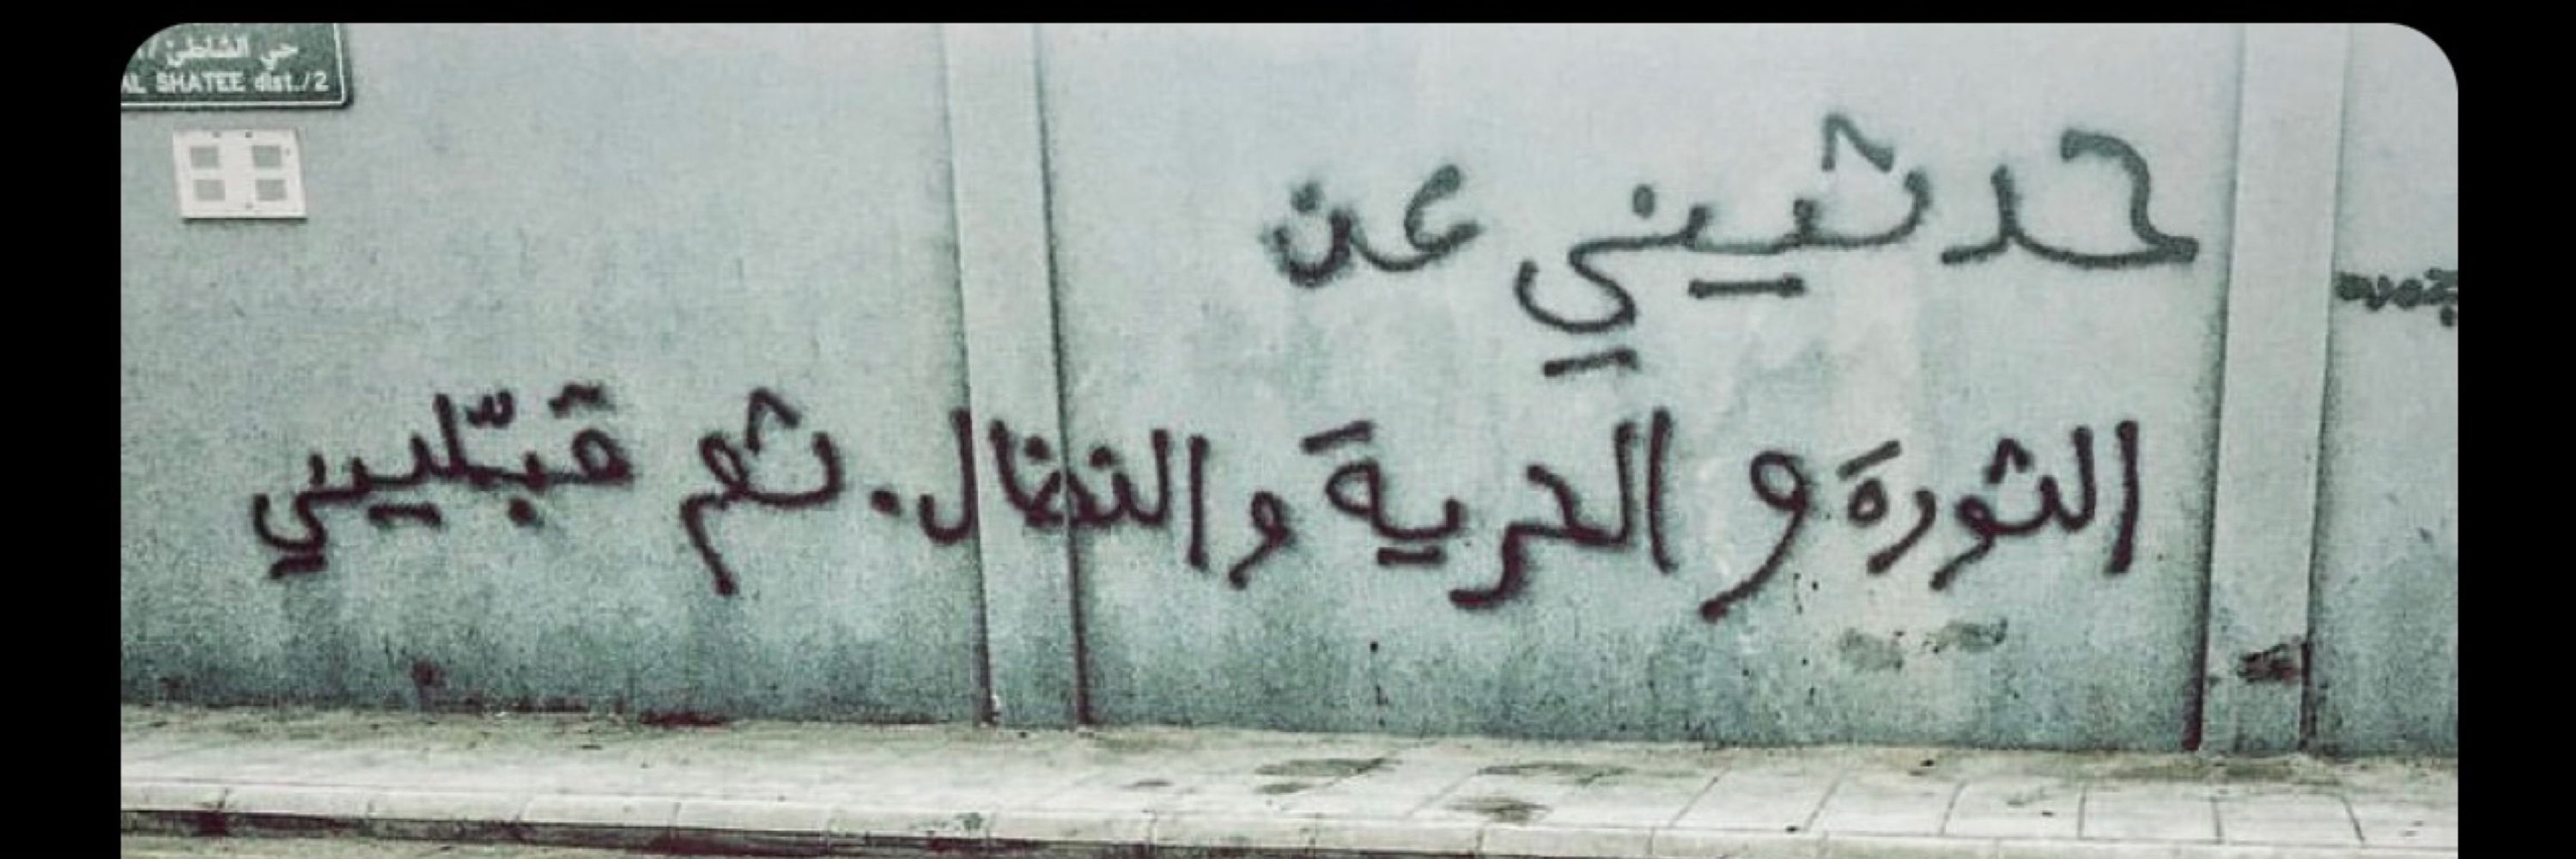 حي الشاطئ
AL SHATEE dist./2
حدثيني عن
الثورة و الحرية والنضال. ثم قبّليني